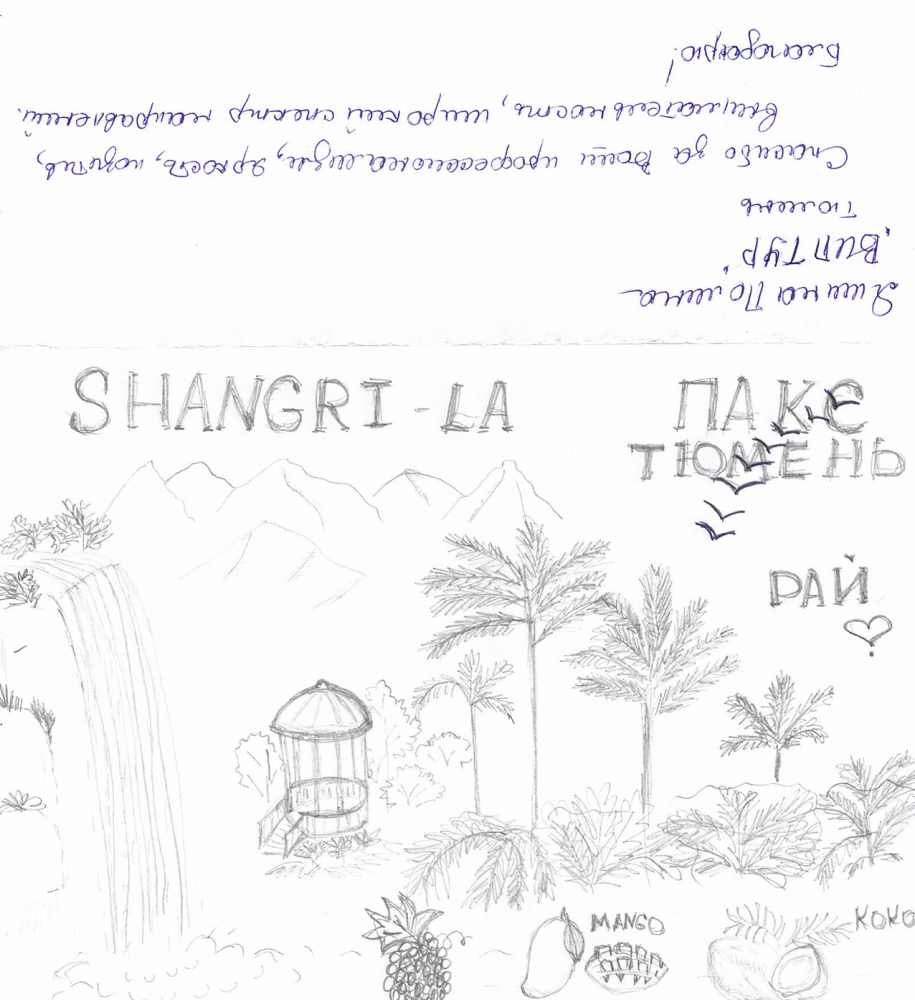 Яшина Полина
"ВИПТУР"
Тюмень
Спасибо за Ваш профессионализм, яркость, позитив,
внимательность, широкий спектр направлений.
Благодарю!
SHANGRI-LA
ПАКС
ТЮМЕНЬ
РАЙ
MANGO
КОКО